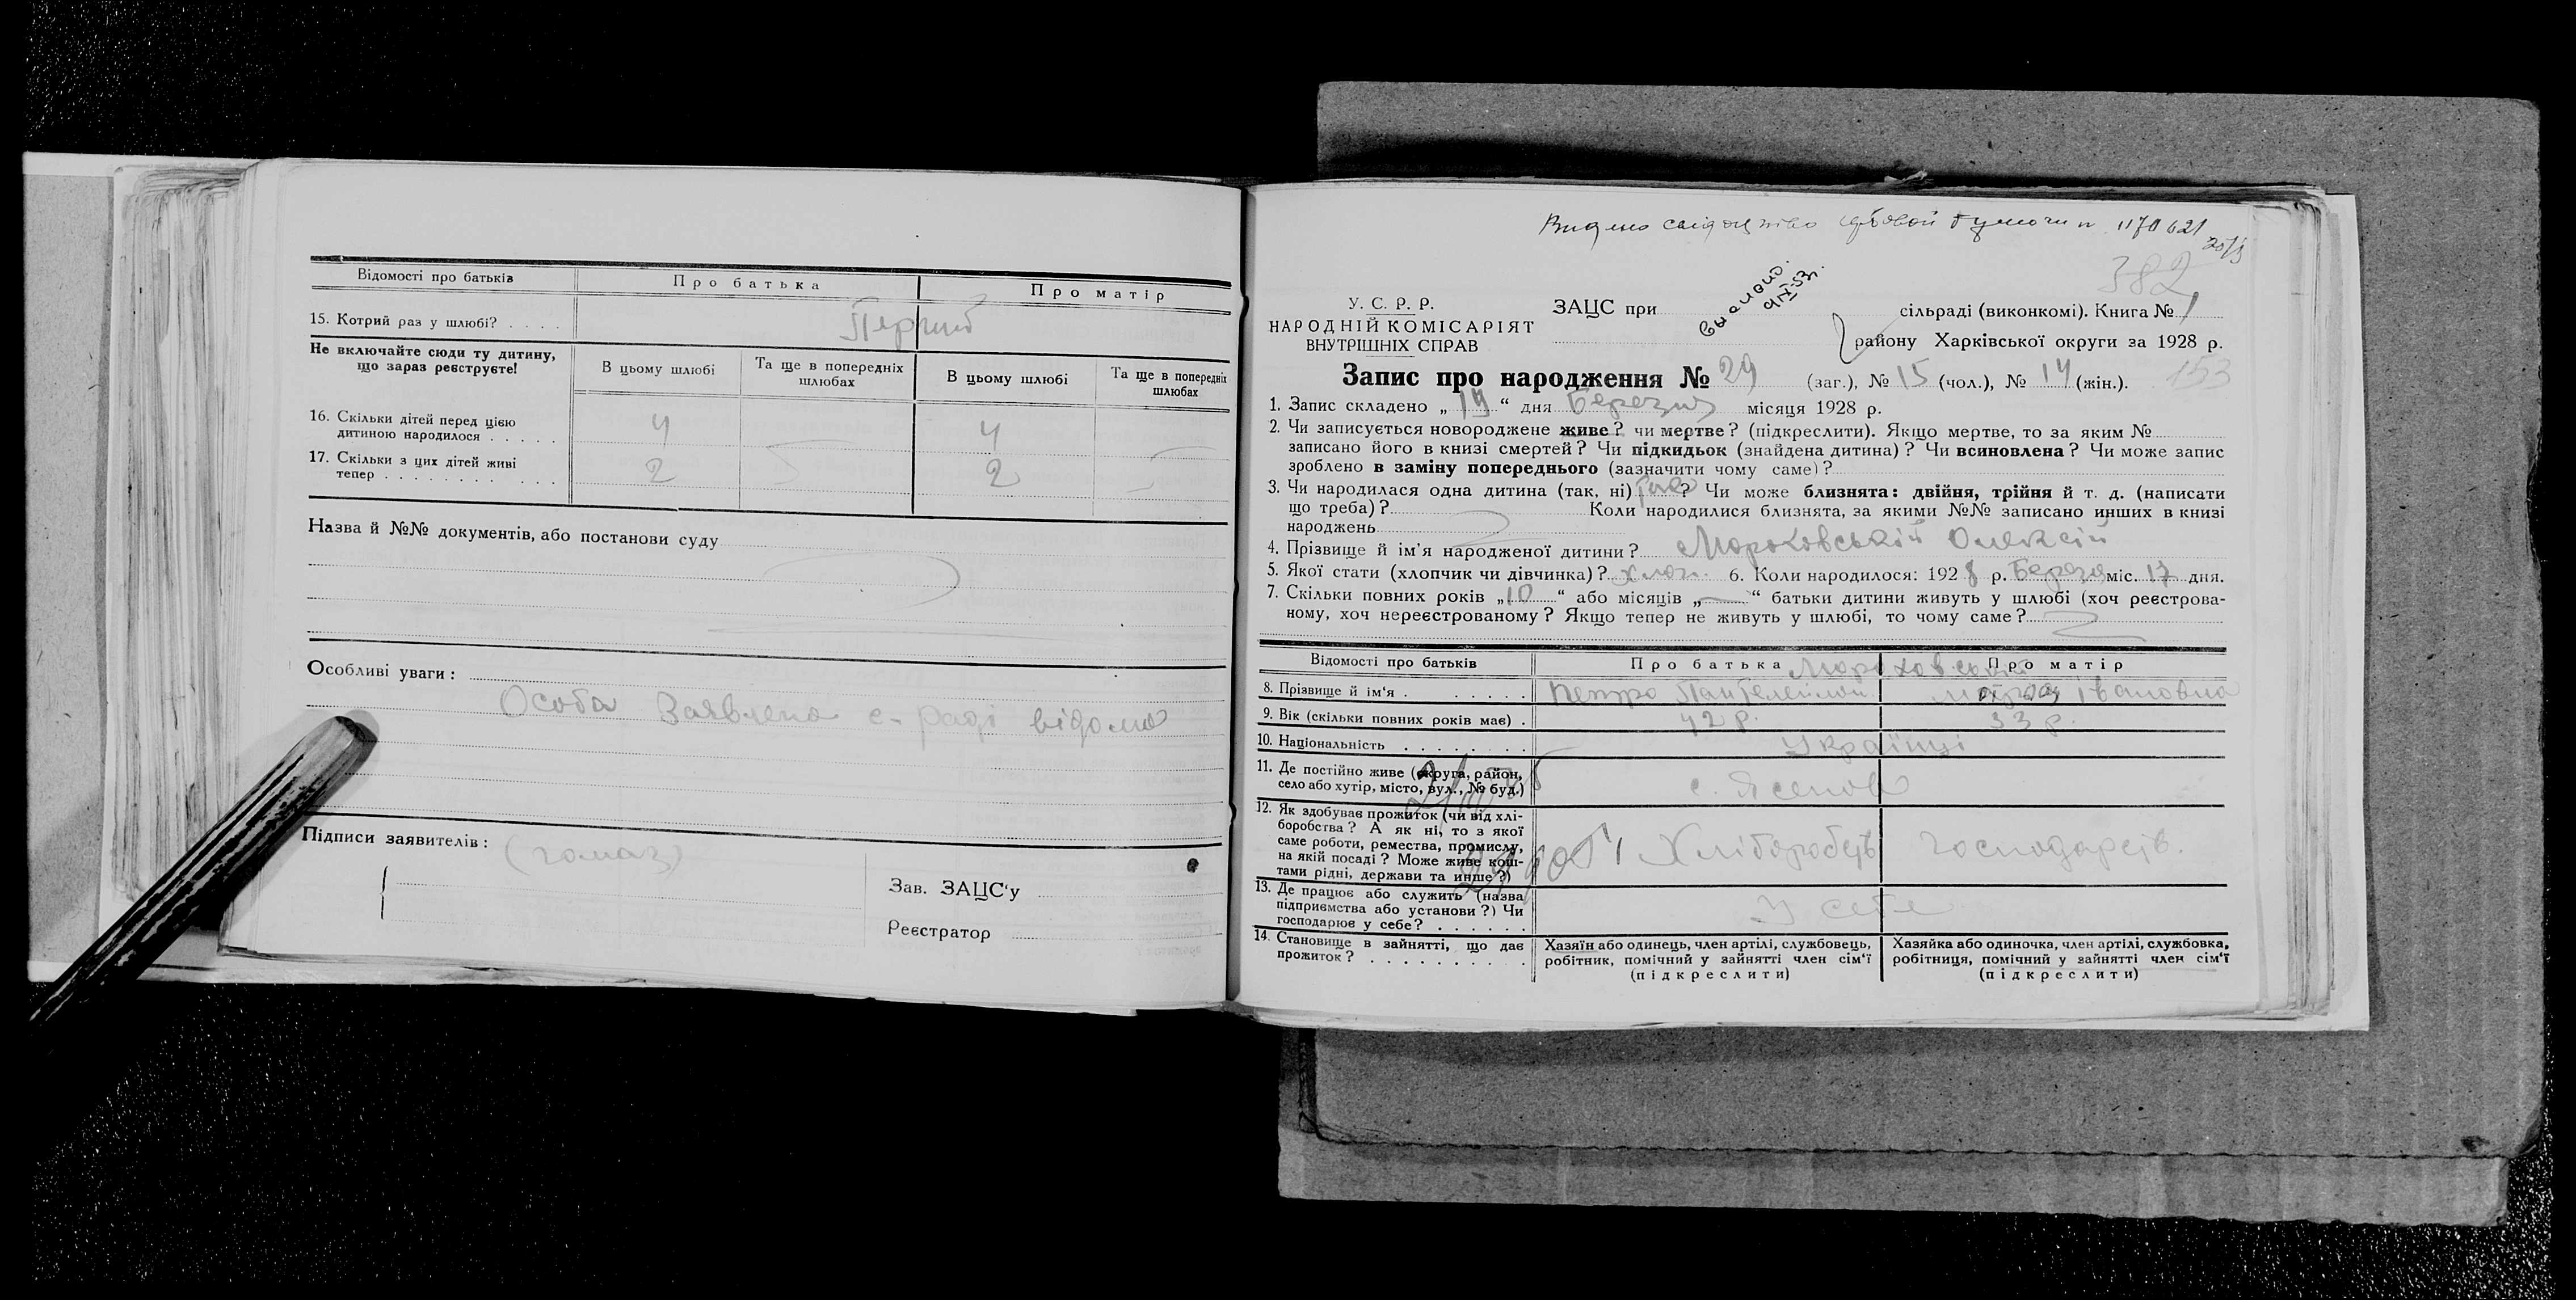 Відомості про батьків Про батька Про матір
15. Котрий раз у шлюбі? Перший
Не включайте сюди ту дитину, що зараз реєструєте!
В цьому шлюбі Та ще в попередніх шлюбах В цьому шлюбі Та ще в попередніх шлюбах
16. Скільки дітей перед цією
дитиною народилося 4 4
17. Скільки з цих дітей живі
тепер 2 2
Назва й №№ документів, або постанови суду
Особливі уваги:
Особа Заявлена с-раді відома
Підписи заявителів:
Зав. ЗАЦС'у
Реєстратор
Видано свідоцтво 1170621
382
У. С. Р. Р.
НАРОДНІЙ КОМІСАРІЯТ
ВНУТРІШНІХ СПРАВ
ЗАЦС при сільраді (виконкомі). Книга № 1
району Харківської округи за 1928 р.
153
Запис про народження № 29 (заг.), № 15 (чол.), № 14 (жін.).
1. Запис складено „19“ дня Березня місяця 1928 р.
2. Чи записується новороджене живе? чи мертве? (підкреслити). Якщо мертве, то за яким №
записано його в книзі смертей? Чи підкидьок (знайдена дитина)? Чи всиновлена? Чи може запис
зроблено в заміну попереднього (зазначити чому саме)?
3. Чи народилася одна дитина (так, ні) ? Чи може близнята: двійня, трійня й т. д. (написати
що треба)? Коли народилися близнята, за якими №№ записано инших в книзі
народжень
4. Прізвище й ім'я народженої дитини? Мороховський Олексій
5. Якої стати (хлопчик чи дівчинка)? хлоп. 6. Коли народилося: 1928 р. Березня міс. 17 дня.
7. Скільки повних років „10“ або місяців „—“ батьки дитини живуть у шлюбі (хоч реєстрова-
ному, хоч нереєстрованому? Якщо тепер не живуть у шлюбі, то чому саме?
Відомості про батьків Про батька Про матір
Мороховський
8. Прізвище й ім'я Петро Пантелеймон Іванов­на
9. Вік (скільки повних років має) 42 р. 33 р.
10. Національність Українці
11. Де постійно живе (округа, район,
село або хутір, місто, вул., № буд.) с. Ясенове
12. Як здобуває прожиток (чи від хлі-
боробства? А як ні, то з якої
саме роботи, ремества, промислу,
на якій посаді? Може живе кош-
тами рідні, держави та инше?) Хлібороб­ств господарств.
13. Де працює або служить (назва
підприємства або установи?) Чи
господарює у себе? У себе
14. Становище в зайнятті, що дає
прожиток?
Хазяїн або одинець, член артілі, службовець,
робітник, помічний у зайнятті член сім'ї
(підкреслити)
Хазяйка або одиночка, член артілі, службовка,
робітниця, помічний у зайнятті член сім'ї
(підкреслити)